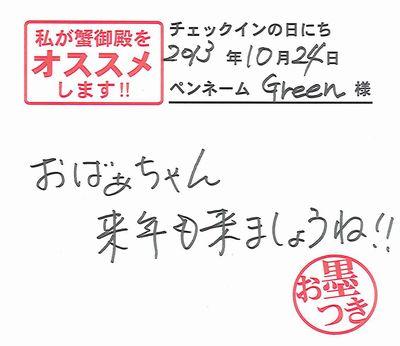 私が蟹御殿を
オススメ
します!!
チェックインの日にち
2013年10月24日
ペンネーム Green 様
おばぁちゃん
来年も来ましょうね!!
お墨つき